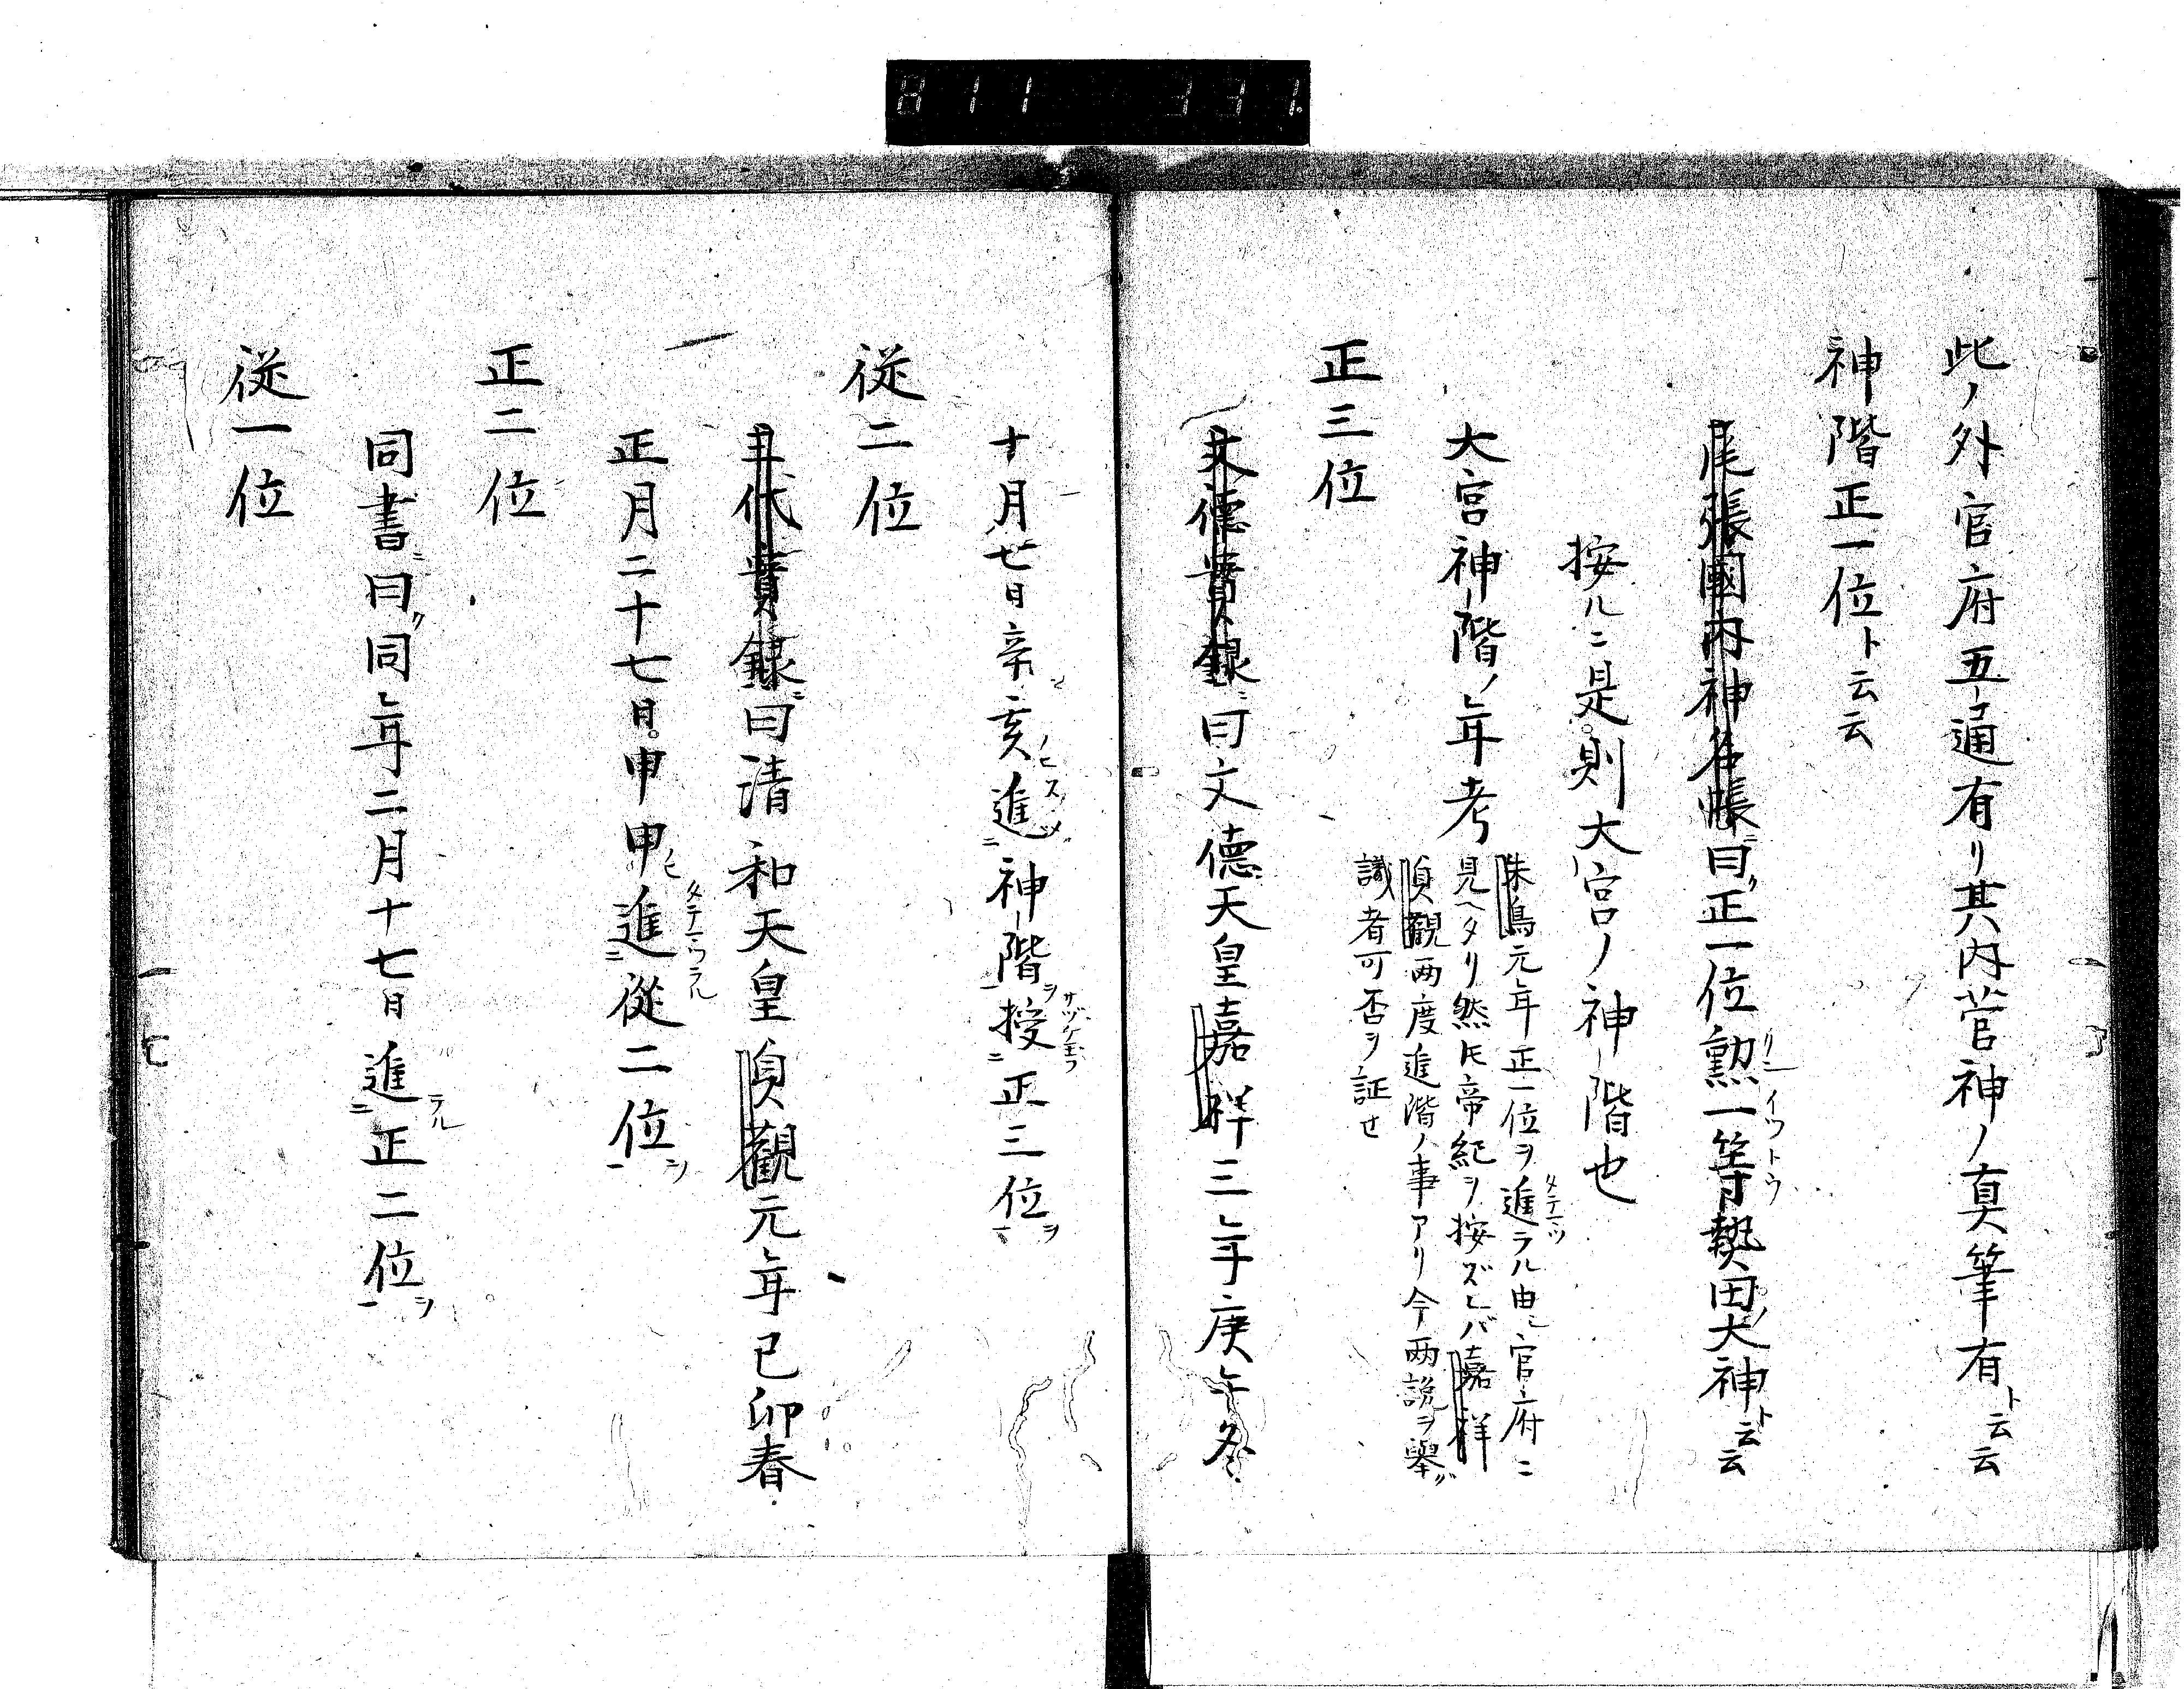 811 331
此ノ外官府五通有リ其内菅神ノ真筆有ト云云
神階正一位ト云云
尾張國内神名帳ニ曰ク正一位勲一等熱田ノ大神ト云云
按ルニ是則大宮ノ神階也
大宮神階ノ年考
朱鳥元年正一位ヲ進ラル由シ官府ニ
見ヘタリ然𪜈帝紀ヲ按ズレバ嘉祥
貞觀両度進階ノ事アリ今両説ヲ擧グ
識者可否ヲ証セ
正三位
文德實録ニ曰文德天皇嘉祥三年庚午冬
十月七日辛亥進神階授正三位
従二位
三代實録ニ曰清和天皇貞觀元年己卯春
正月二十七日甲申進從二位
正二位
同書ニ曰ク同年二月十七日進正二位
従一位
一七